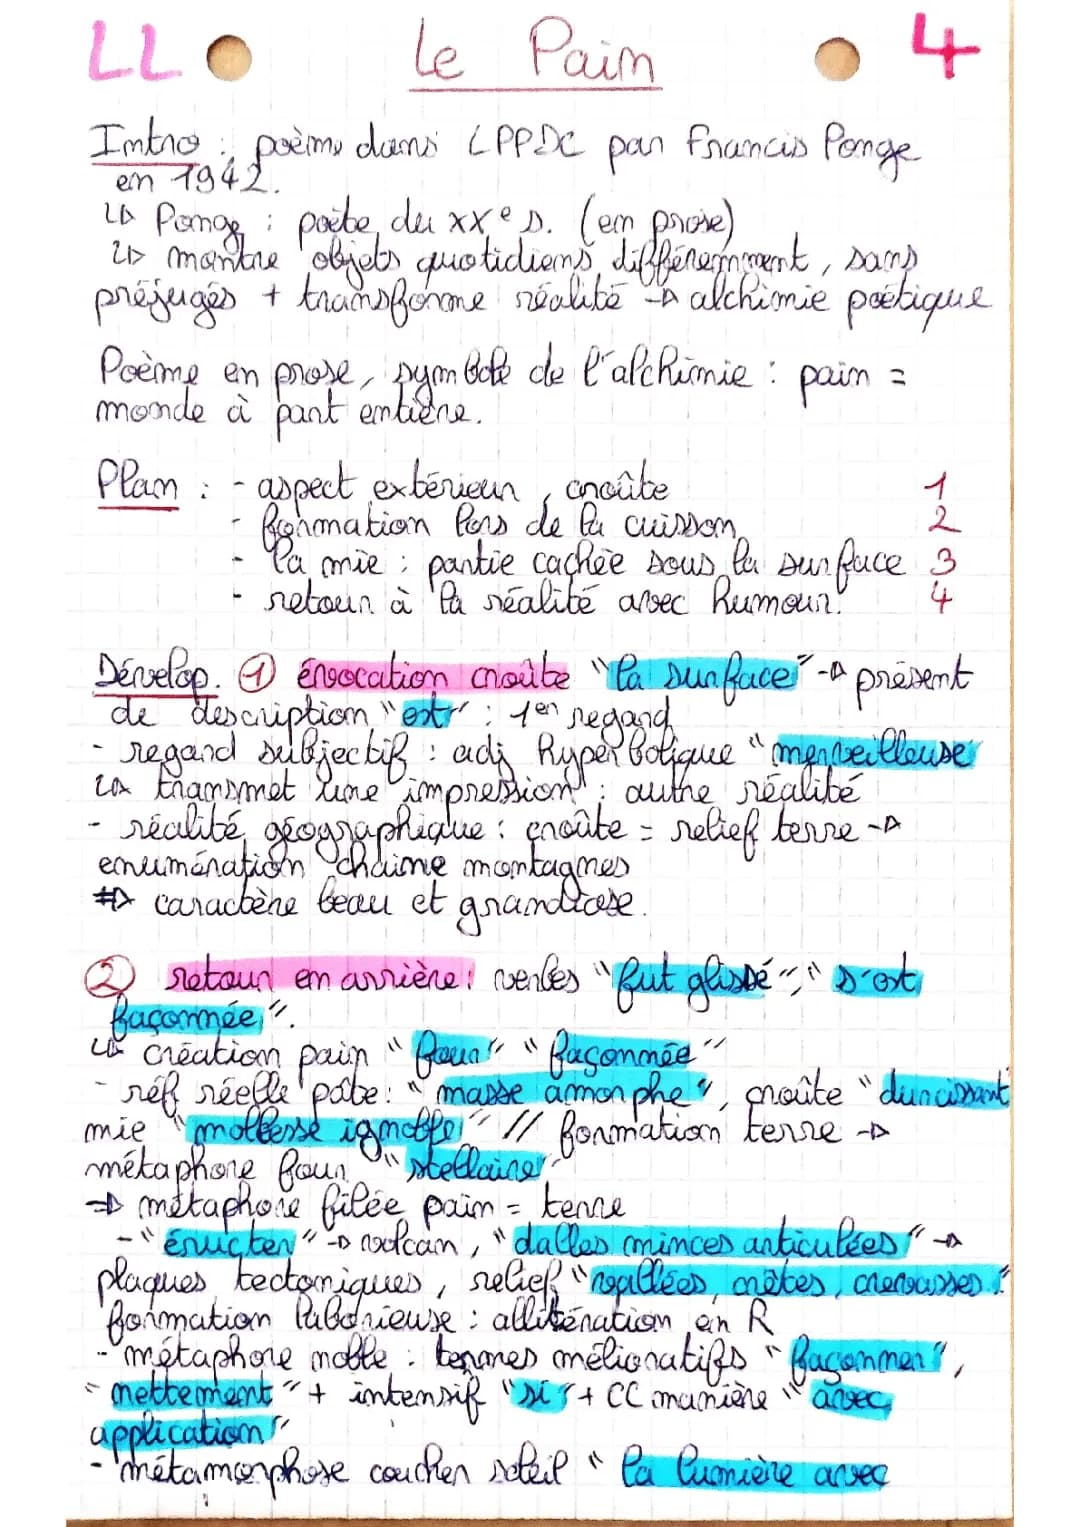 LL Le Pain 4
Intro : poème dans LPPDC par Francis Ponge
en 1942.
↳ Ponge : poète du XXe s. (en prose)
↳ montre objets quotidiens différemment, sans
préjugés + transforme réalité → alchimie poétique
Poème en prose, symbole de l'alchimie : pain =
monde à part entière.
Plan : - aspect extérieur, croûte 1
- formation lors de la cuisson 2
- la mie : partie cachée sous la surface 3
- retour à la réalité avec humour. 4
Dévelop. ① évocation croûte "la surface" → présent
de description "est" : 1er regard
- regard subjectif : adj hyperbolique "merveilleuse"
↳ transmet une "impression" : autre réalité
- réalité géographique : croûte = relief terre →
enumération chaîne montagnes
⇒ caractère beau et grandiose.
② retour en arrière : verbes "fut glissé", "s'est
façonnée".
↳ création pain "four" "façonnée"
- réf réelle pâte : "masse amorphe", croûte "durcissant"
mie "mollesse ignoble" // formation terre →
métaphore four "stellaire"
⇒ métaphore filée pain = terre
- "éructer" → volcan, "dalles minces articulées" →
plaques tectoniques, relief "vallées, crêtes, crevasses"
formation laborieuse : allitération en R
- métaphore noble : termes mélioratifs "façonner",
"nettement" + intensif "si" + CC manière "avec
application"
- métamorphose coucher soleil "la lumière avec